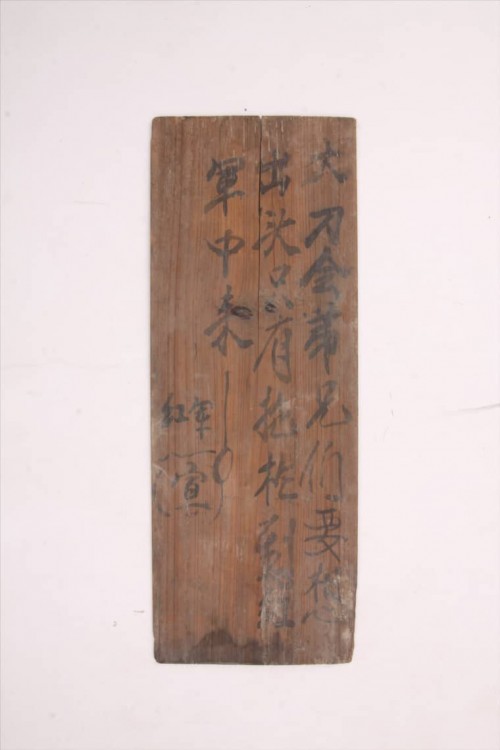 大刀会弟兄们要想
出头只有拖枪到红
军中来！
红军
（宣）